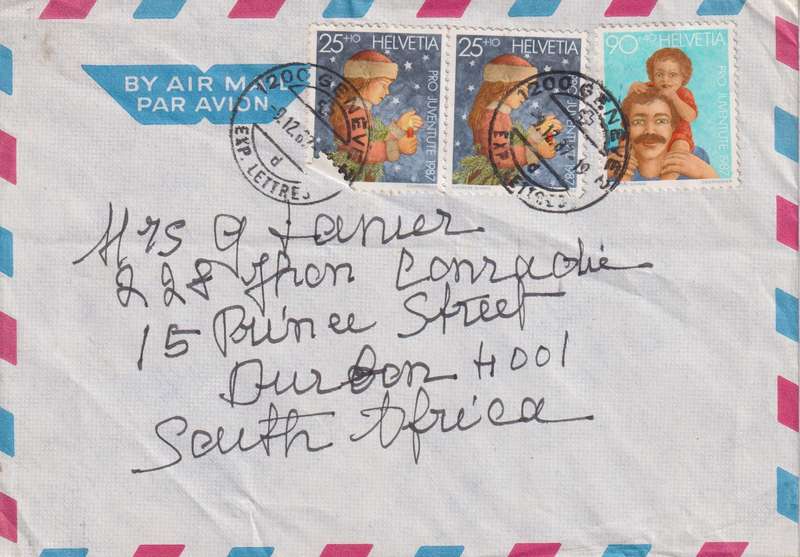 25+10 HELVETIA
PRO JUVENTUTE 1987
25+10 HELVETIA
PRO JUVENTUTE 1987
90+40 HELVETIA
PRO JUVENTUTE 1987
BY AIR MAIL
PAR AVION
1200 GENEVE
-9.12.87
d
EXP LETTRES
1200 GENEVE
-9.12.87-19
d
EXP LETTRES
Mrs G
228
15 Prince Street
Durban 4001
South Africa